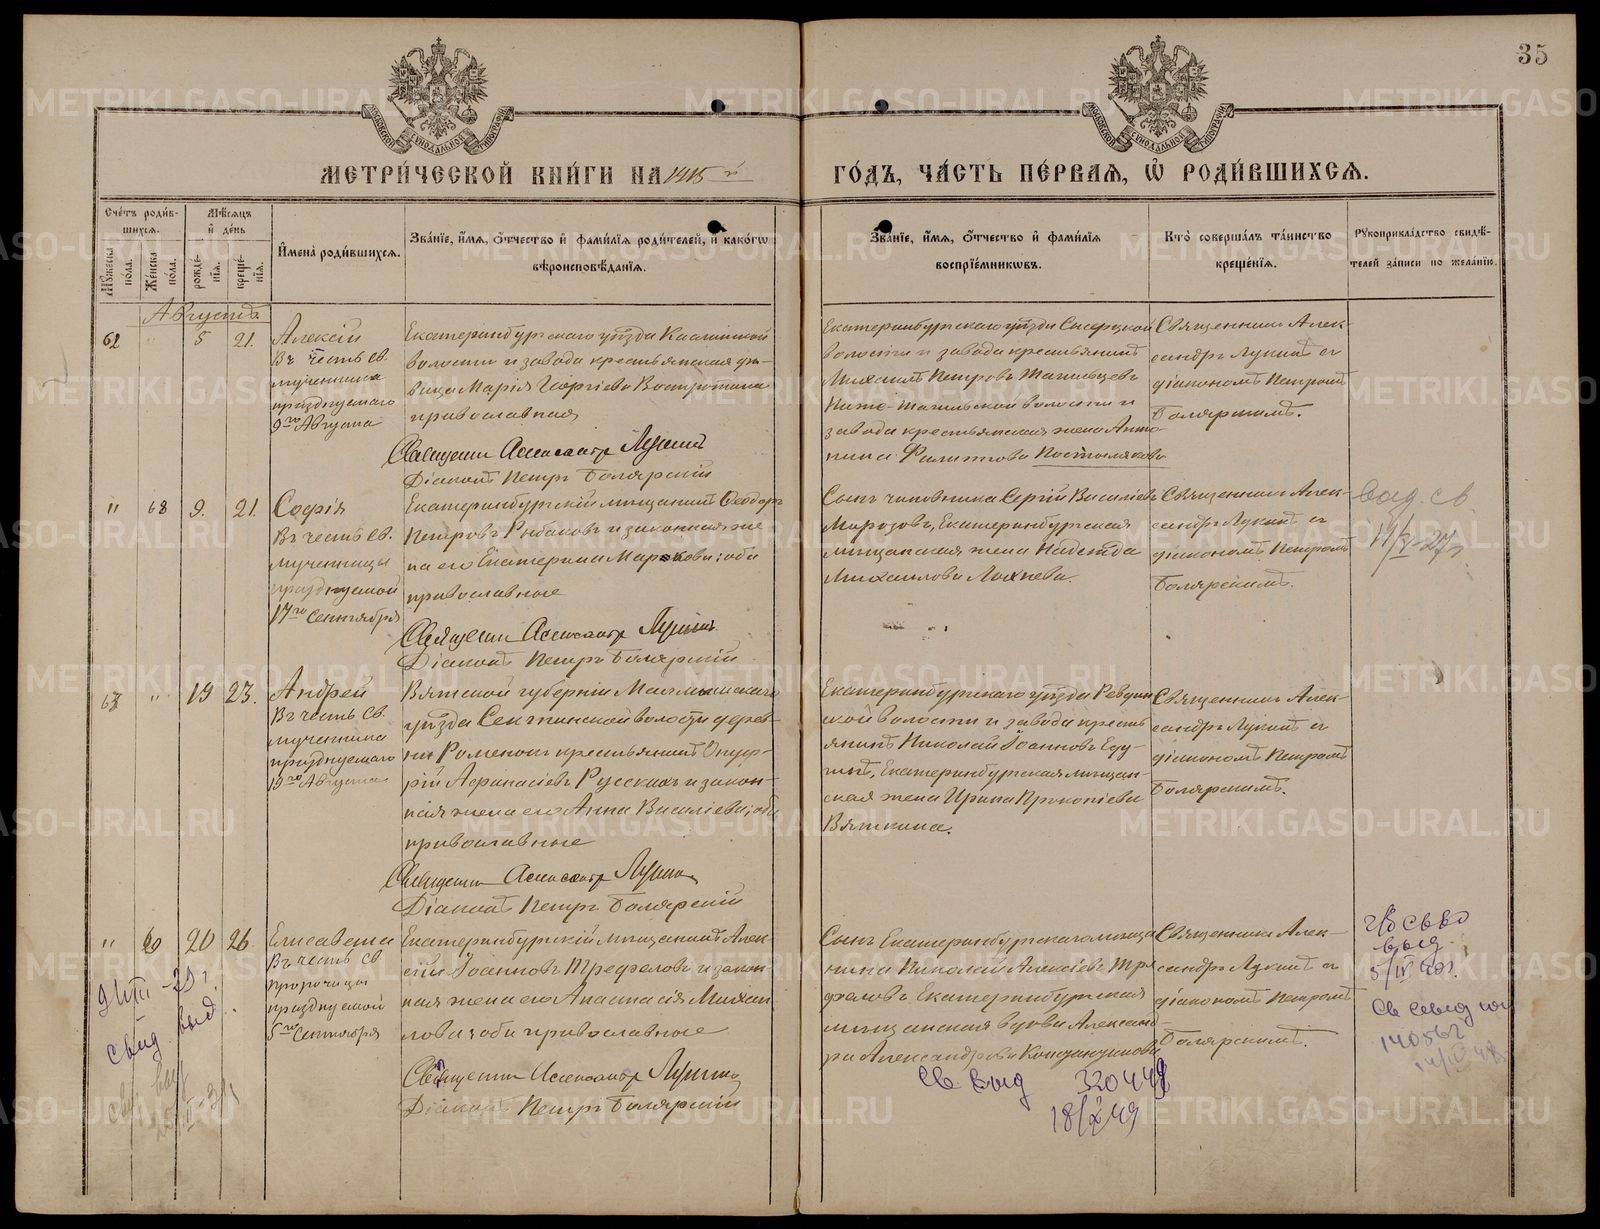 35
МЕТРИ́ЧЕСКОЙ КНИ́ГИ НА 1915 й
ГО́ДЪ, ЧА́СТЬ ПЕ́РВАЯ, Ѡ РОДИ́ВШИХСЯ.
Сче́тъ роди́вшихся.
Мꙋжеска по́ла.
Женска по́ла.
Мѣсяцъ и́ де́нь
рожде́нїя.
креще́нїя.
И̓мена̀ роди́вшихся.
Зва́нїе, и́мя, ѻ́тчество и́ фами́лїѧ роди́телей, и́ како́гѡ
вѣроисповѣ́данїѧ.
Зва́нїе, и́мя, ѻ́тчество и́ фами́лїѧ
воспрїе́мникѡвъ.
Кто̀ соверша́лъ та́инство
креще́нїѧ.
Рꙋкоприкла́дство свидѣ́-
телей за́писи по жела́нїю.
Августъ
62 " 5 21.
Алексій
Въ честь св.
мученика
празднуемаго
9го Августа
Екатеринбургскаго уѣзда Каслинской
волости и завода крестьянская дѣ-
вица Марія Георгіева Востротина
православная
Священник Александр Лукин
Діаконъ Петръ Боярскій
Екатеринбургскаго уѣзда Сысертской
волости и завода крестьянинъ
Михаилъ Петровъ
Нижне-Тагильской волости и
завода крестьянская жена Анто-
нина Филиппова
Священникъ Алек-
сандръ Лукинъ съ
діакономъ Петромъ
Боярскимъ.
" 68 9. 21.
Софія
Въ честь св.
мученицы
празднуемой
17го Сентября
Екатеринбургскій мѣщанинъ Ѳеодоръ
Петровъ Рыбаковъ и законная же-
на его Екатерина Маркова; оба
православные
Священник Александр Лукин
Діаконъ Петръ Боярскій
Сынъ чиновника Сергій Василіевъ
Морозовъ, Екатеринбургская
мѣщанская жена Надежда
Михаилова
Священникъ Алек-
сандръ Лукинъ съ
діакономъ Петромъ
Боярскимъ.
выд. св.
63 " 19 23.
Андрей
Въ честь св.
мученика
празднуемаго
19го Августа
Вятской губерніи Малмыжскаго
уѣзда волости дерев-
ни крестьянинъ Онуф-
рій Аѳанасіевъ Русскихъ и закон-
ная жена его Анна Василіева; оба
православные
Священник Александр Лукин
Діаконъ Петръ Боярскій
Екатеринбургскаго уѣзда Ревдин-
ской волости и завода кресть-
янинъ Николай Іоанновъ
Екатеринбургская мѣщан-
ская жена Ирина Прокопіева
Вяткина.
Священникъ Алек-
сандръ Лукинъ съ
діакономъ Петромъ
Боярскимъ.
" 20 26.
Елисавета
Въ честь св.
пророчицы
празднуемой
5го Сентября
Екатеринбургскій мѣщанинъ Алек-
сій Іоанновъ Трефеловъ и закон-
ная жена его Анастасія Михаи-
лова; оба православные
Священник Александр Лукин
Діаконъ Петръ Боярскій
Сынъ Екатеринбургскаго мѣща-
нина Николай Алексіевъ Тре-
феловъ, Екатеринбургская
мѣщанская вдова Александ-
ра Александрова
Священникъ Алек-
сандръ Лукинъ съ
діакономъ Петромъ
Боярскимъ.
Св. выд 320442
18/X 49
140562